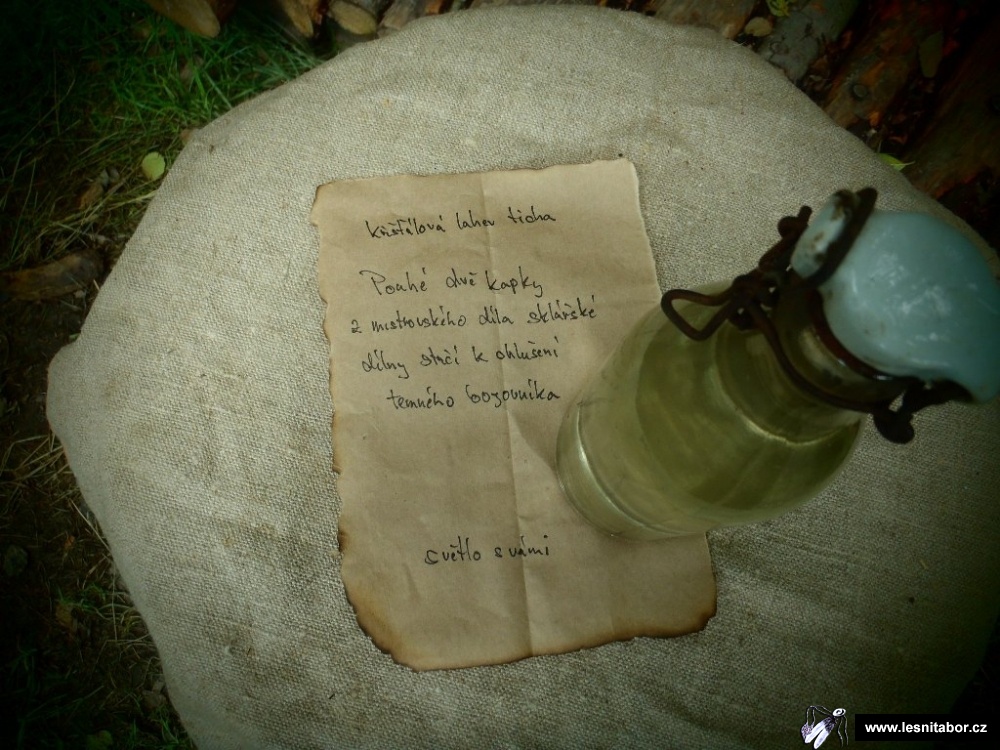 Křišťálová lahev ticha
Pouhé dvě kapky
z mistrovského díla sklářské
dílny stačí k ohlušení
temného bojovníka
světlo s vámi
www.lesnitabor.cz